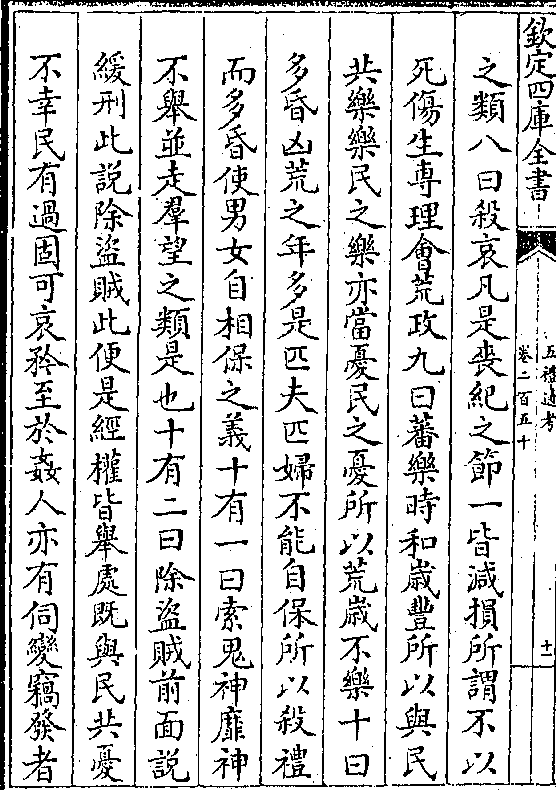 欽定四庫全書
五禮通考
卷二百五十
十一
之類八曰殺哀凡是喪紀之節一皆減損所謂不以
死傷生専理會荒政九曰蕃樂時和歳豐所以與民
共樂樂民之樂亦當憂民之憂所以荒歳不樂十曰
多昏凶荒之年多是匹夫匹婦不能自保所以殺禮
而多昏使男女自相保之義十有一曰索鬼神靡神
不舉並走羣望之類是也十有二曰除盜賊前面説
緩刑此説除盜賊此便是經權皆舉處既與民共憂
不幸民有過固可哀矜至於姦人亦有伺變竊發者